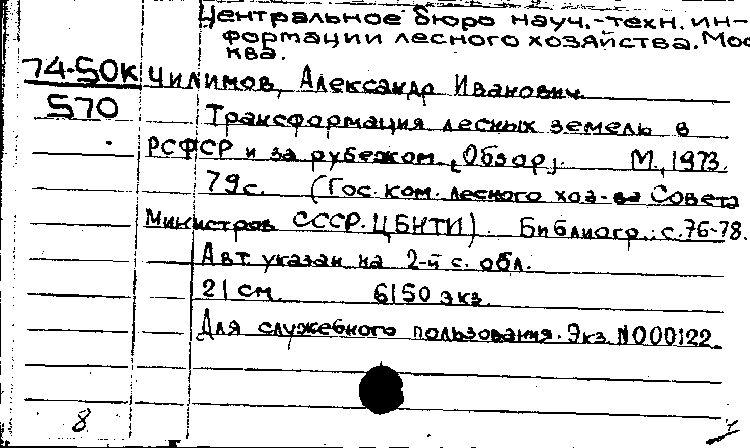 Центральное бюро науч.-техн. ин-
формации лесного хозяйства. Мос
ква.
74-50к Чилимов, Александр Иванович.
570 Трансформация лесных земель в
РСФСР и за рубежом. [Обзор]. М., 1973.
79 с. (Гос. ком. лесного хоз-ва Совета
Министров СССР. ЦБНТИ). Библиогр.: с. 76-78.
Авт. указан на 2-й с. обл.
21 см. 6150 экз.
Для служебного пользования. Экз. N000122
8